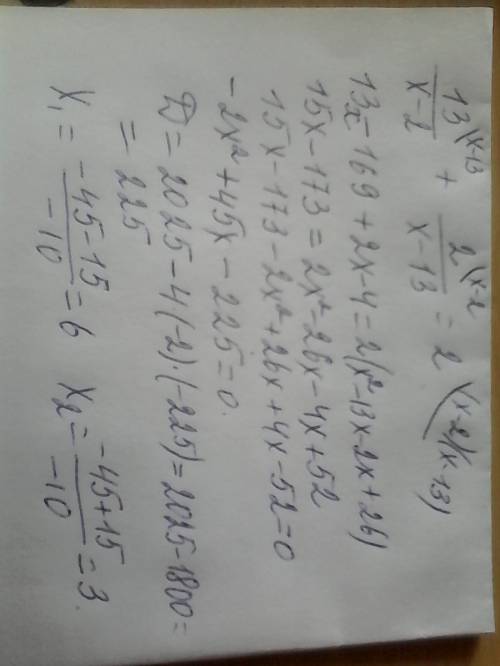 13\(x-13 / x-2 + 2\(x-2 / x-13 = 2\((x-2)(x-13)
13x-169+2x-4=2(x²-13x-2x+26)
15x-173=2x²-26x-4x+52
15x-173-2x²+26x+4x-52=0
-2x²+45x-225=0.
D=2025-4(-2)·(-225)=2025-1800=
=225
x₁= -45-15 / -10 =6 x₂= -45+15 / -10 =3.